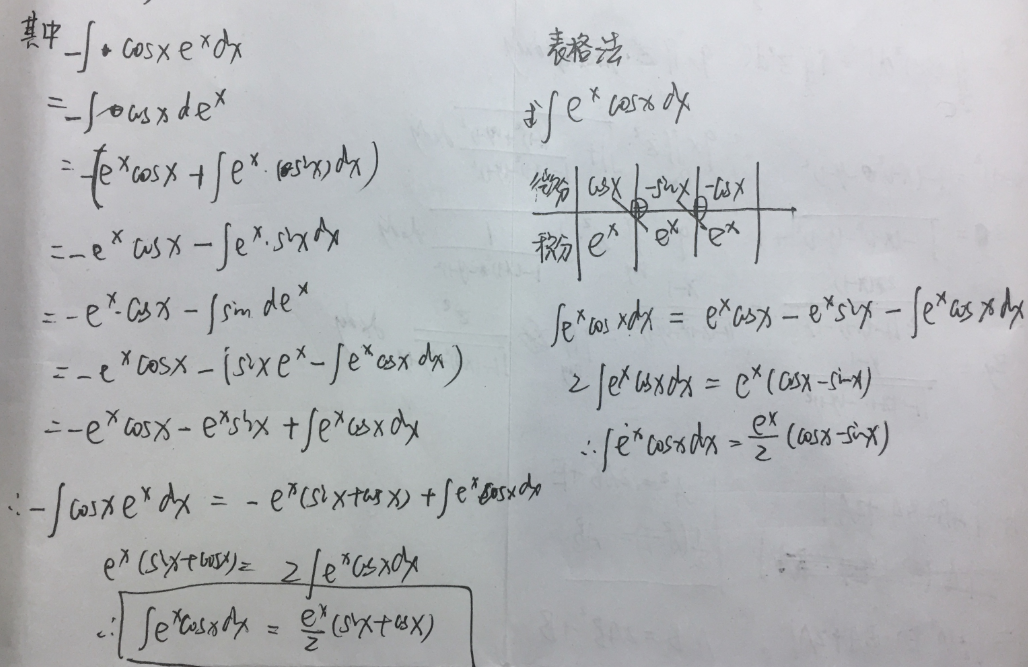 其中 -∫ cosx eˣ dx
= -∫ cosx deˣ
= -(eˣcosx + ∫eˣ·(sinx)dx)
= -eˣ cosx - ∫eˣ·sinx dx
= -eˣ·cosx - ∫sin deˣ
= -eˣcosx - (sinx eˣ - ∫eˣcosx dx)
= -eˣcosx - eˣsinx + ∫eˣcosx dx
∴ -∫cosx eˣ dx = -eˣ(sinx+cosx) + ∫eˣcosx dx
eˣ(sinx+cosx) = 2∫eˣcosx dx
∴ ∫eˣcosx dx = eˣ/2 (sinx+cosx)
表格法
求∫eˣ cosx dx
微分 cosx -sinx -cosx
积分 eˣ eˣ eˣ
∫eˣcosx dx = eˣcosx - eˣsinx - ∫eˣcosx dx
2∫eˣcosx dx = eˣ(cosx-sinx)
∴ ∫eˣcosx dx = eˣ/2 (cosx-sinx)